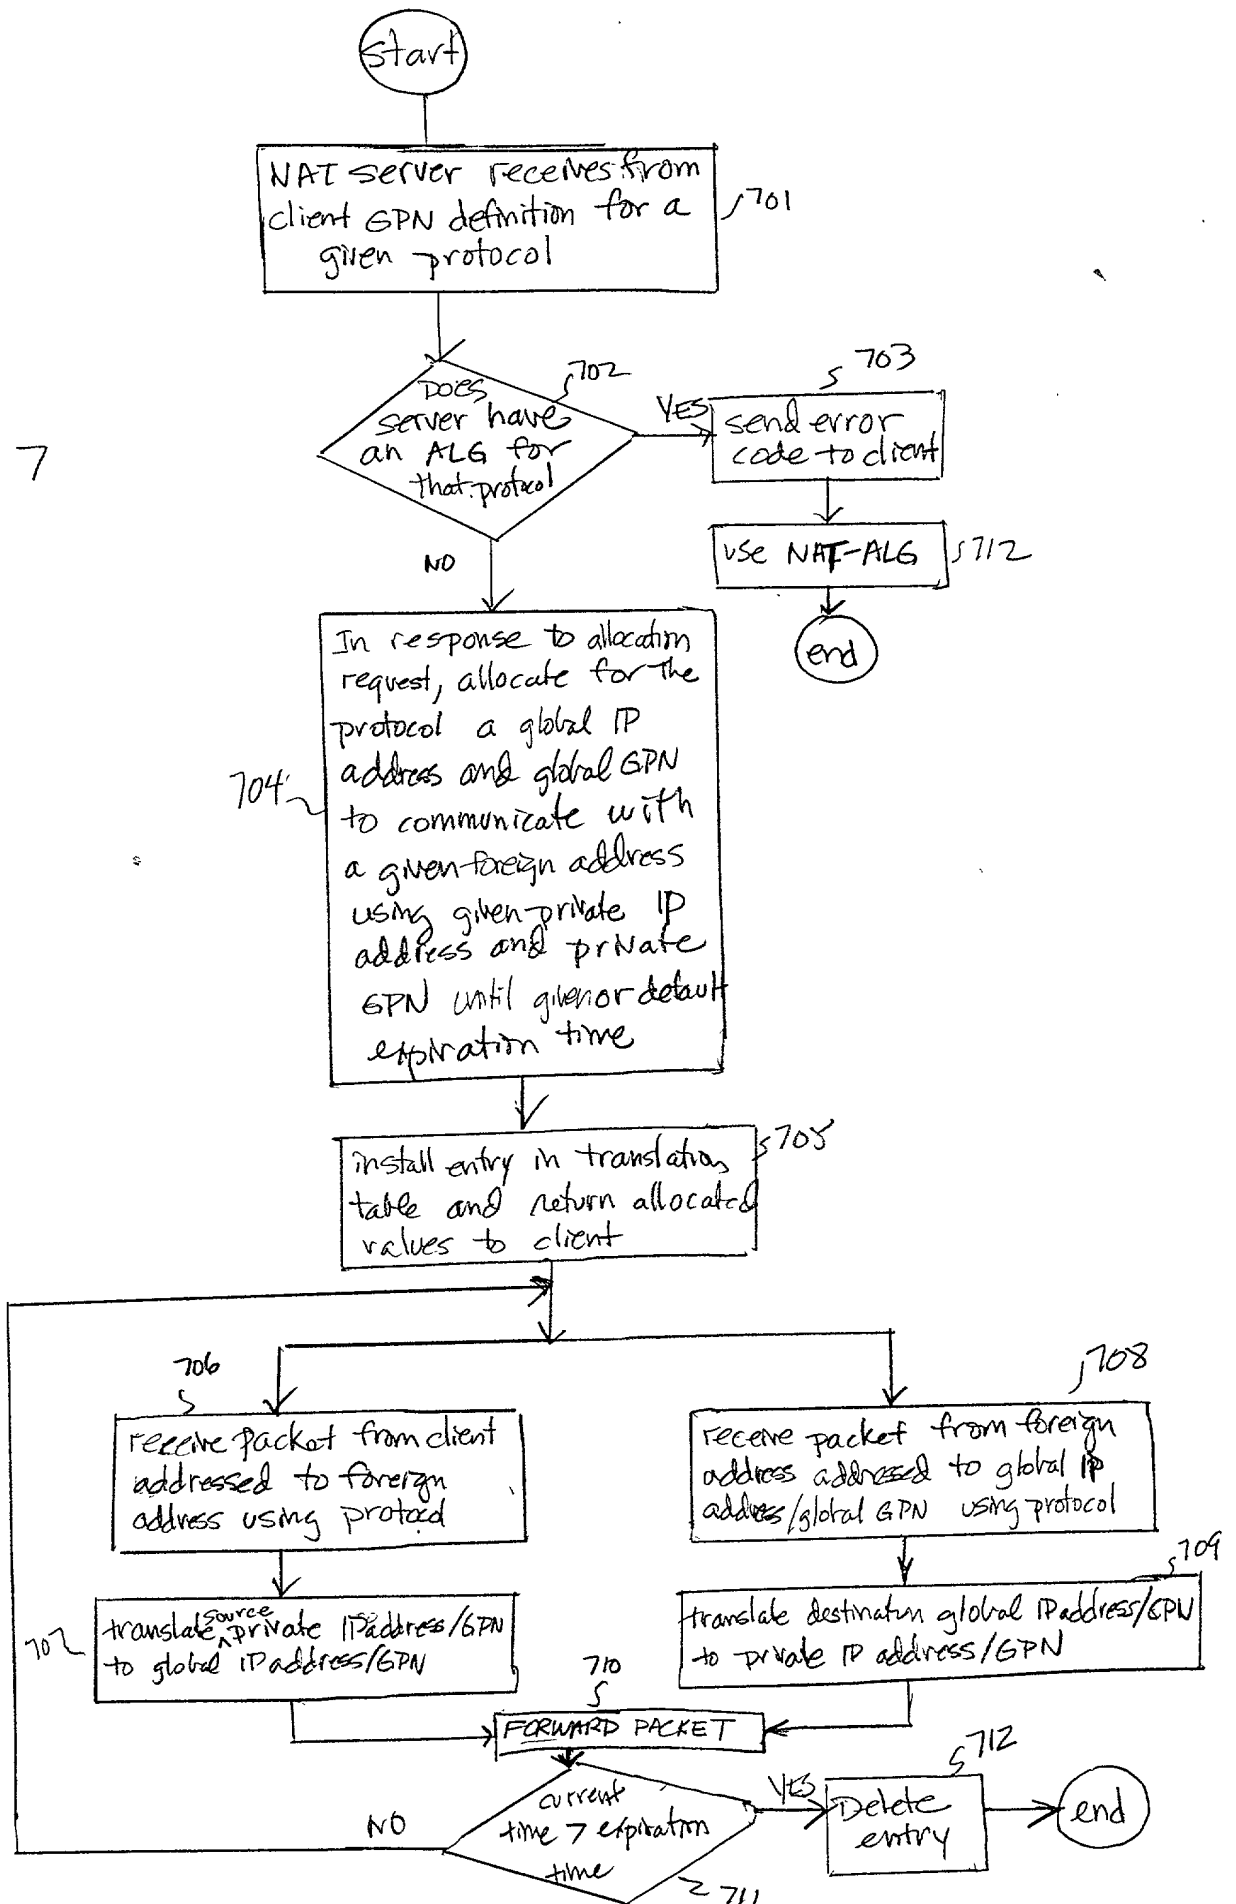 start
NAT server receives from
client GPN definition for a
given protocol
701
7
DOES
server have
an ALG for
that protocol
702
YES
703
send error
code to client
use NAT-ALG
712
end
NO
In response to allocation
request, allocate for the
protocol a global IP
address and global GPN
to communicate with
a given foreign address
using given private IP
address and private
GPN until given or default
expiration time
704
install entry in translation
table and return allocated
values to client
705
706
receive packet from client
addressed to foreign
address using protocol
708
receive packet from foreign
address addressed to global IP
address/global GPN using protocol
707
translate source private IP address/GPN
to global IP address/GPN
709
translate destination global IP address/GPN
to private IP address/GPN
710
FORWARD PACKET
current
time > expiration
time
711
NO
YES
712
Delete
entry
end